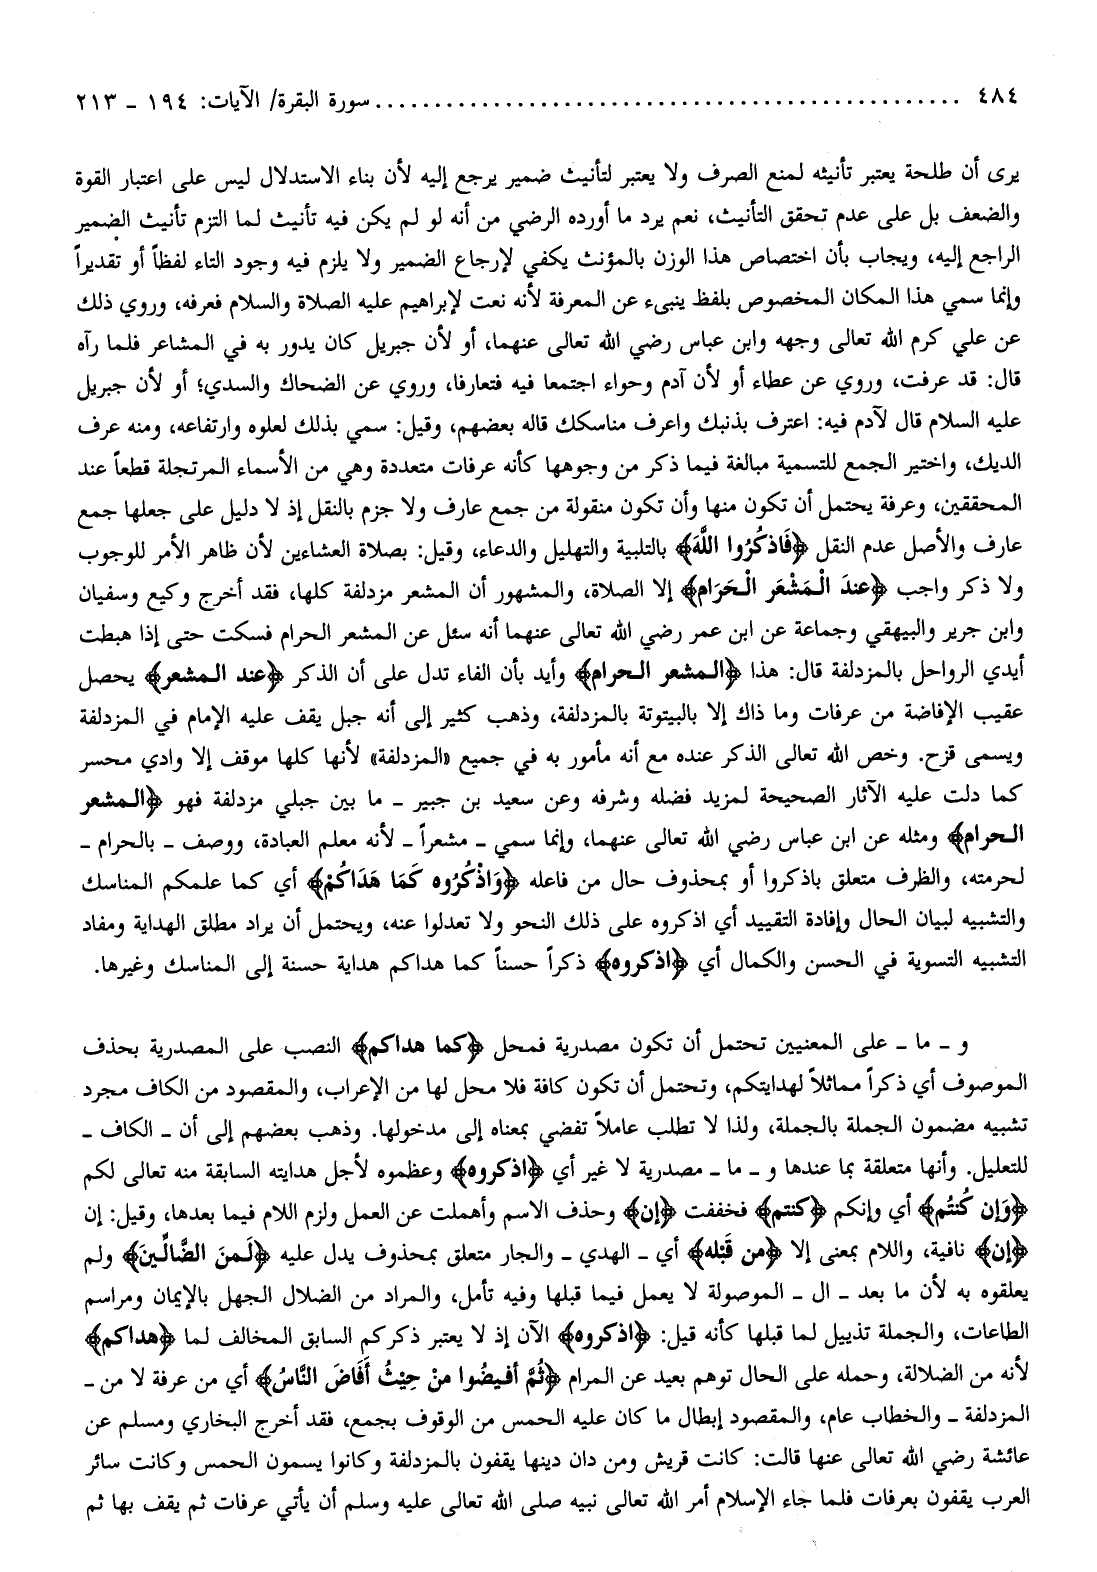 ٤٨٤ ................................................ سورة البقرة/ الآيات: ١٩٤ ـ ٢١٣
يرى أن طلحة يعتبر تأنيثه لمنع الصرف ولا يعتبر لتأنيث ضمير يرجع إليه لأن بناء الاستدلال ليس على اعتبار القوة
والضعف بل على عدم تحقق التأنيث، نعم يرد ما أورده الرضي من أنه لو لم يكن فيه تأنيث لما التزم تأنيث الضمير
الراجع إليه، ويجاب بأن اختصاص هذا الوزن بالمؤنث يكفي لإرجاع الضمير ولا يلزم فيه وجود التاء لفظاً أو تقديراً
وإنما سمي هذا المكان المخصوص بلفظ ينبىء عن المعرفة لأنه نعت لإبراهيم عليه الصلاة والسلام فعرفه، وروي ذلك
عن علي كرم الله تعالى وجهه وابن عباس رضي الله تعالى عنهما، أو لأن جبريل كان يدور به في المشاعر فلما رآه
قال: قد عرفت، وروي عن عطاء أو لأن آدم وحواء اجتمعا فيه فتعارفا، وروي عن الضحاك والسدي؛ أو لأن جبريل
عليه السلام قال لآدم فيه: اعترف بذنبك واعرف مناسكك قاله بعضهم، وقيل: سمي بذلك لعلوه وارتفاعه، ومنه عرف
الديك، واختير الجمع للتسمية مبالغة فيما ذكر من وجوهها كأنه عرفات متعددة وهي من الأسماء المرتجلة قطعاً عند
المحققين، وعرفة يحتمل أن تكون منها وأن تكون منقولة من جمع عارف ولا جزم بالنقل إذ لا دليل على جعلها جمع
عارف والأصل عدم النقل ﴿فَاذكُرُوا اللَّهَ﴾ بالتلبية والتهليل والدعاء، وقيل: بصلاة العشاءين لأن ظاهر الأمر للوجوب
ولا ذكر واجب ﴿عندَ الْمَشْعَر الْحَرَام﴾ إلا الصلاة، والمشهور أن المشعر مزدلفة كلها، فقد أخرج وكيع وسفيان
وابن جرير والبيهقي وجماعة عن ابن عمر رضي الله تعالى عنهما أنه سئل عن المشعر الحرام فسكت حتى إذا هبطت
أيدي الرواحل بالمزدلفة قال: هذا ﴿المشعر الحرام﴾ وأيد بأن الفاء تدل على أن الذكر ﴿عند المشعر﴾ يحصل
عقيب الإفاضة من عرفات وما ذاك إلا بالبيتوتة بالمزدلفة، وذهب كثير إلى أنه جبل يقف عليه الإمام في المزدلفة
ويسمى قزح. وخص الله تعالى الذكر عنده مع أنه مأمور به في جميع «المزدلفة» لأنها كلها موقف إلا وادي محسر
كما دلت عليه الآثار الصحيحة لمزيد فضله وشرفه وعن سعيد بن جبير ـ ما بين جبلي مزدلفة فهو ﴿المشعر
الحرام﴾ ومثله عن ابن عباس رضي الله تعالى عنهما، وإنما سمي ـ مشعراً ـ لأنه معلم العبادة، ووصف ـ بالحرام ـ
لحرمته، والظرف متعلق باذكروا أو بمحذوف حال من فاعله ﴿وَاذْكُرُوه كَمَا هَدَاكُمْ﴾ أي كما علمكم المناسك
والتشبيه لبيان الحال وإفادة التقييد أي اذكروه على ذلك النحو ولا تعدلوا عنه، ويحتمل أن يراد مطلق الهداية ومفاد
التشبيه التسوية في الحسن والكمال أي ﴿اذكروه﴾ ذكراً حسناً كما هداكم هداية حسنة إلى المناسك وغيرها.
و ـ ما ـ على المعنيين تحتمل أن تكون مصدرية فمحل ﴿كما هداكم﴾ النصب على المصدرية بحذف
الموصوف أي ذكراً مماثلاً لهدايتكم، وتحتمل أن تكون كافة فلا محل لها من الإعراب، والمقصود من الكاف مجرد
تشبيه مضمون الجملة بالجملة، ولذا لا تطلب عاملاً تفضي بمعناه إلى مدخولها. وذهب بعضهم إلى أن ـ الكاف ـ
للتعليل. وأنها متعلقة بما عندها و ـ ما ـ مصدرية لا غير أي ﴿اذكروه﴾ وعظموه لأجل هدايته السابقة منه تعالى لكم
﴿وَإن كُنتُم﴾ أي وإنكم ﴿كنتم﴾ فخففت ﴿إن﴾ وحذف الاسم وأهملت عن العمل ولزم اللام فيما بعدها، وقيل: إن
﴿إن﴾ نافية، واللام بمعنى إلا ﴿من قَبْله﴾ أي ـ الهدي ـ والجار متعلق بمحذوف يدل عليه ﴿لَمنَ الضَّالِّينَ﴾ ولم
يعلقوه به لأن ما بعد ـ ال ـ الموصولة لا يعمل فيما قبلها وفيه تأمل، والمراد من الضلال الجهل بالإيمان ومراسم
الطاعات، والجملة تذييل لما قبلها كأنه قيل: ﴿اذكروه﴾ الآن إذ لا يعتبر ذكركم السابق المخالف لما ﴿هداكم﴾
لأنه من الضلالة، وحمله على الحال توهم بعيد عن المرام ﴿ثُمَّ أفيضُوا منْ حِيْثُ أَفَاضَ النَّاسُ﴾ أي من عرفة لا من ـ
المزدلفة ـ والخطاب عام، والمقصود إبطال ما كان عليه الحمس من الوقوف بجمع، فقد أخرج البخاري ومسلم عن
عائشة رضي الله تعالى عنها قالت: كانت قريش ومن دان دينها يقفون بالمزدلفة وكانوا يسمون الحمس وكانت سائر
العرب يقفون بعرفات فلما جاء الإسلام أمر الله تعالى نبيه صلى الله تعالى عليه وسلم أن يأتي عرفات ثم يقف بها ثم